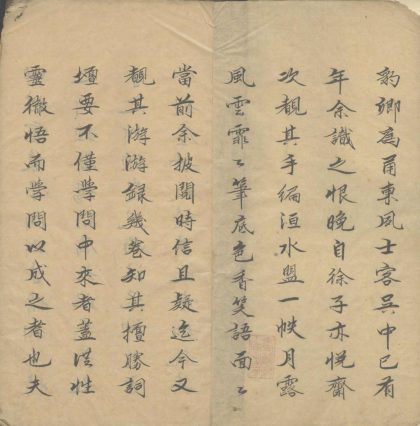 豹卿為甬東風士客吳中已有
年余識之恨晚自徐子亦悅齋
次覯其手編洹水盟一帙月露
風雲霏〻筆底色香笑語面〻
當前余披閱時信且疑迄今又
覯其游游錄幾卷知其擅勝詞
壇要不僅學問中來者蓋從性
靈徹悟而學問以成之者也夫